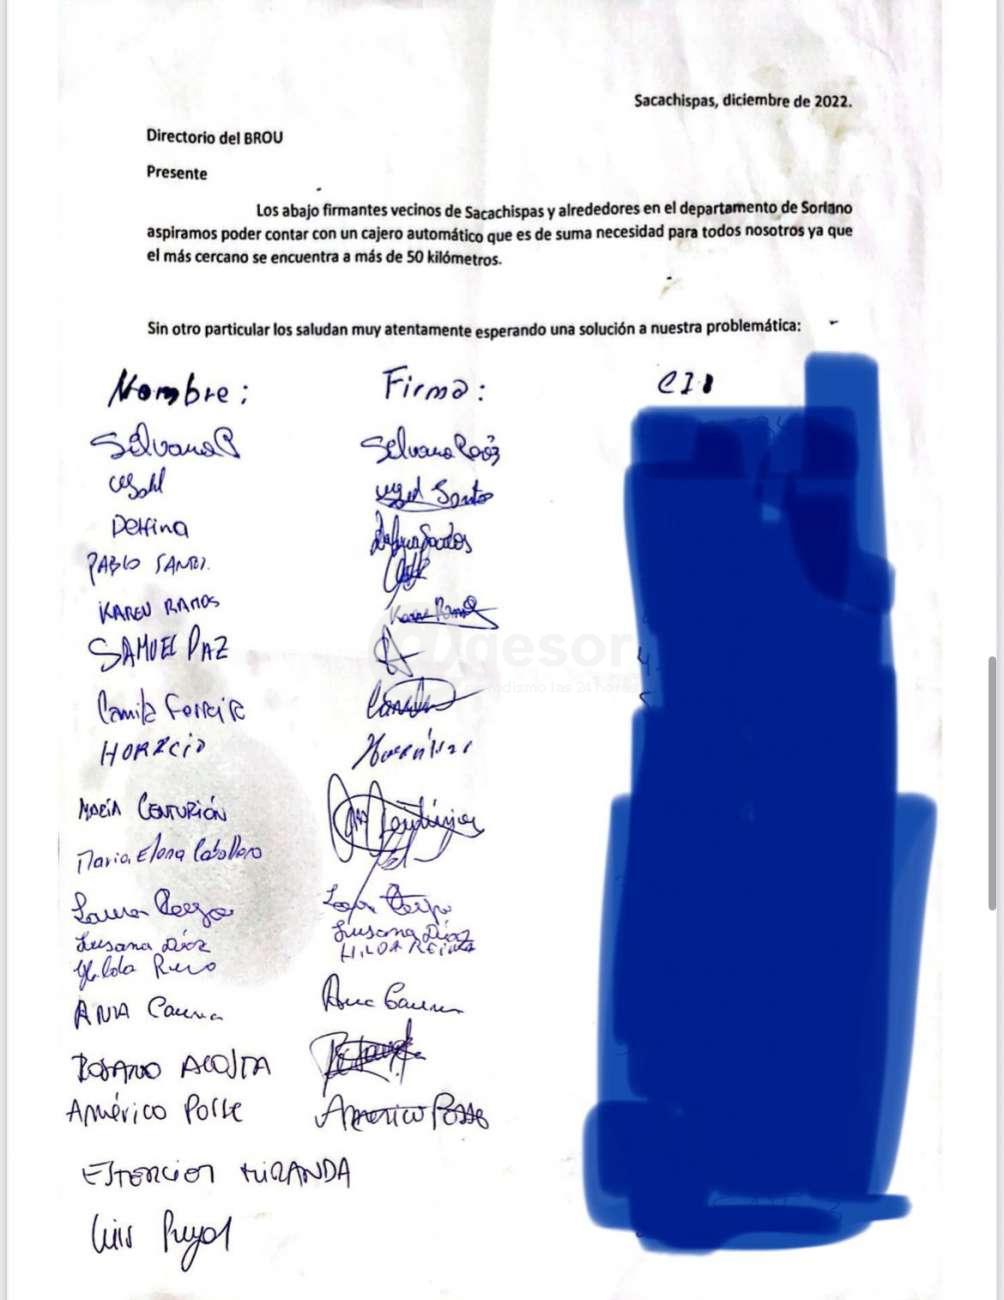 Sacachispas, diciembre de 2022.
Directorio del BROU
Presente
Los abajo firmantes vecinos de Sacachispas y alrededores en el departamento de Soriano
aspiramos poder contar con un cajero automático que es de suma necesidad para todos nosotros ya que
el más cercano se encuentra a más de 50 kilómetros.
Sin otro particular los saludan muy atentamente esperando una solución a nuestra problemática:
Nombre: Firma: CI
Silvana P Silvana
Santos
Delfina Delfina Santos
PABLO
KAREN RAMOS Karen Ramos
SAMUEL PAZ
Camila Ferreira
HORACIO
MARÍA CENTURIÓN
Maria Elena Caballero
Laura
Susana Díaz Susana Díaz
Hilda HILDA
ANA Ana
ROSARIO ACOSTA
Américo Posse Americo Posse
MIRANDA
Luis Puyol
agesor
periodismo las 24 horas